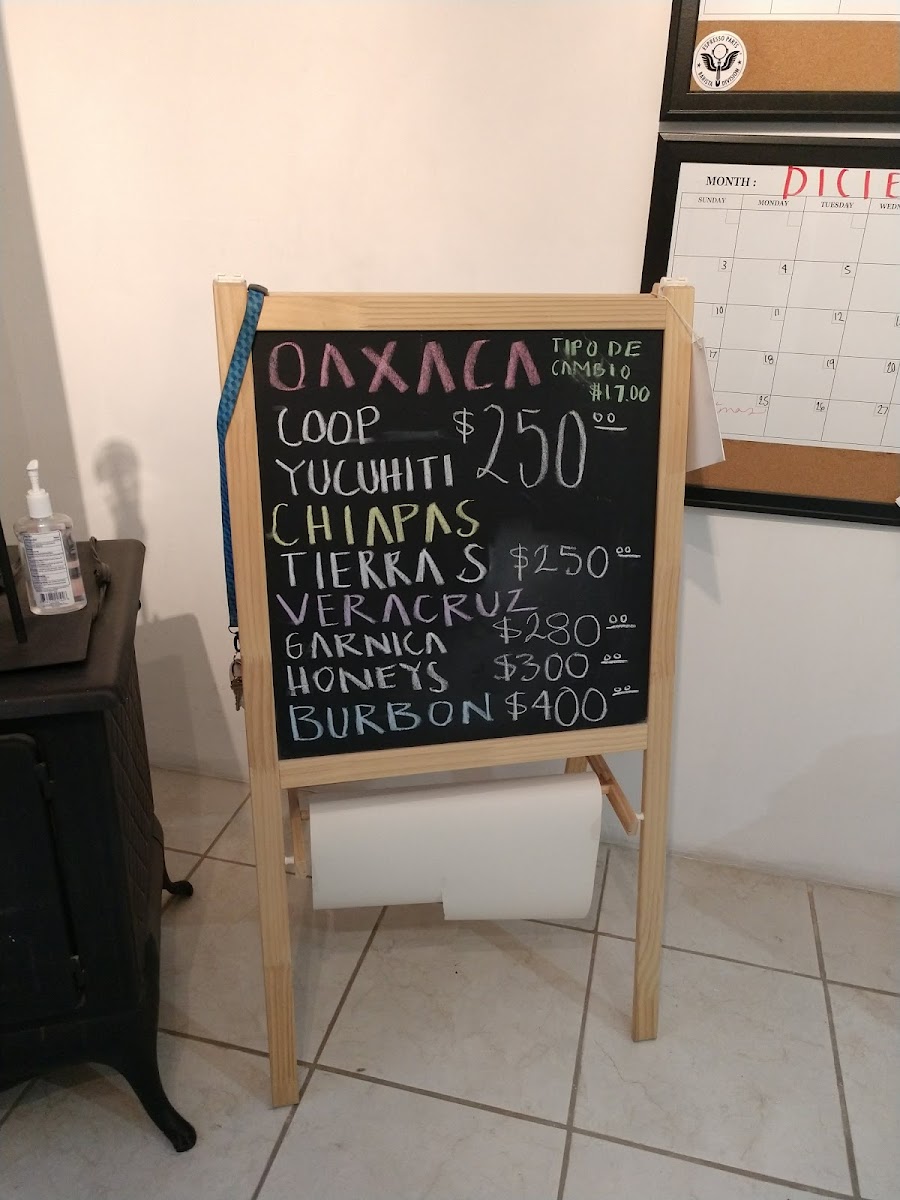 OAXACA
TIPO DE
CAMBIO
$17.00
COOP $250.00
YUCUHITI
CHIAPAS
TIERRAS $250.00
VERACRUZ
GARNICA $280.00
HONEYS $300.00
BURBON $400.00
ESPRESSO PARTS
BARISTA DIVISION
MONTH: DICIE
SUNDAY MONDAY TUESDAY WEDN
3 4 5
10 11 12
17 18 19 20
25 26 27